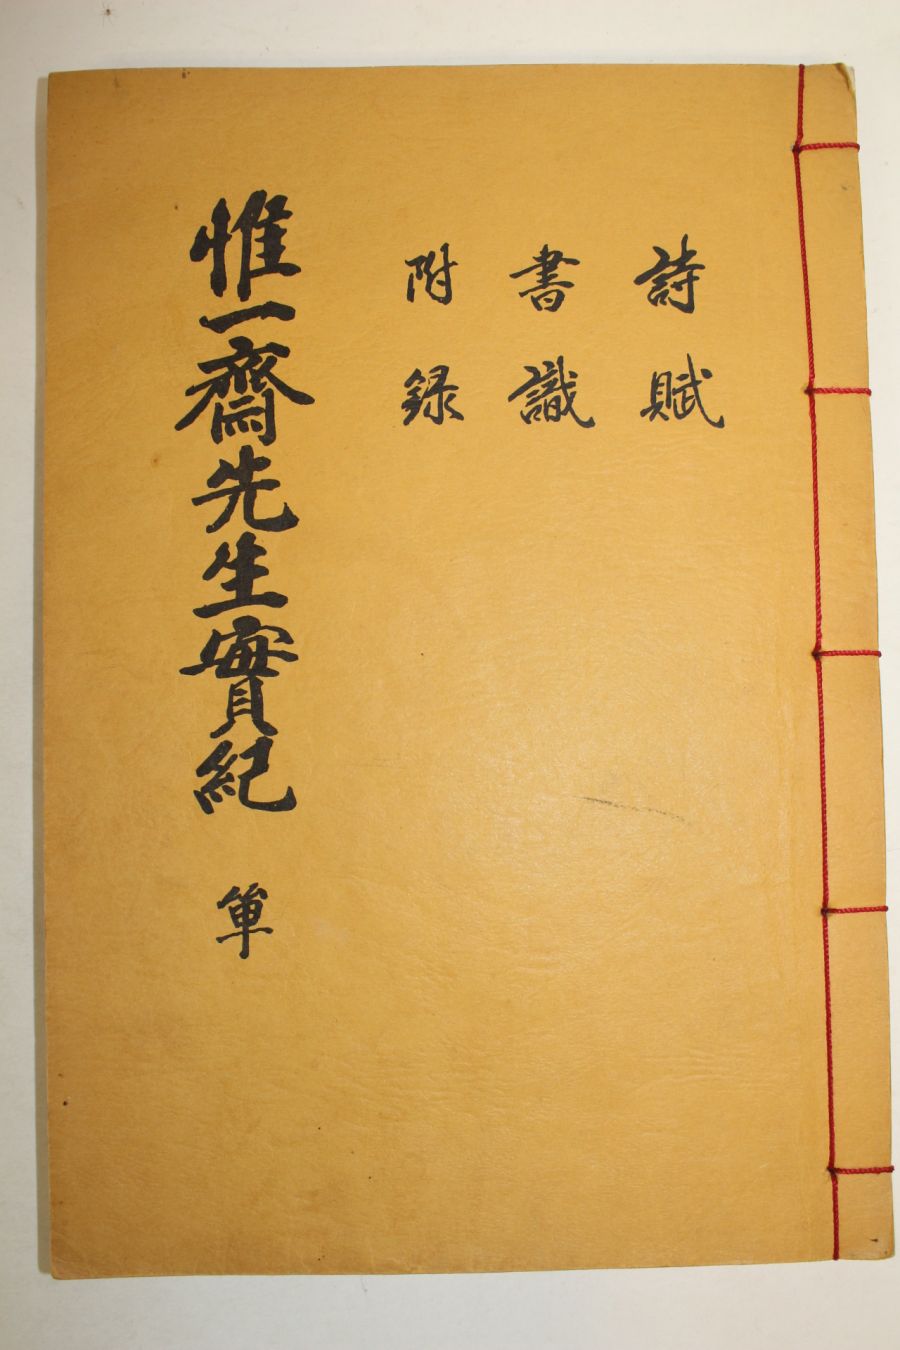 詩賦
書識
附錄
惟一齋先生實紀 單